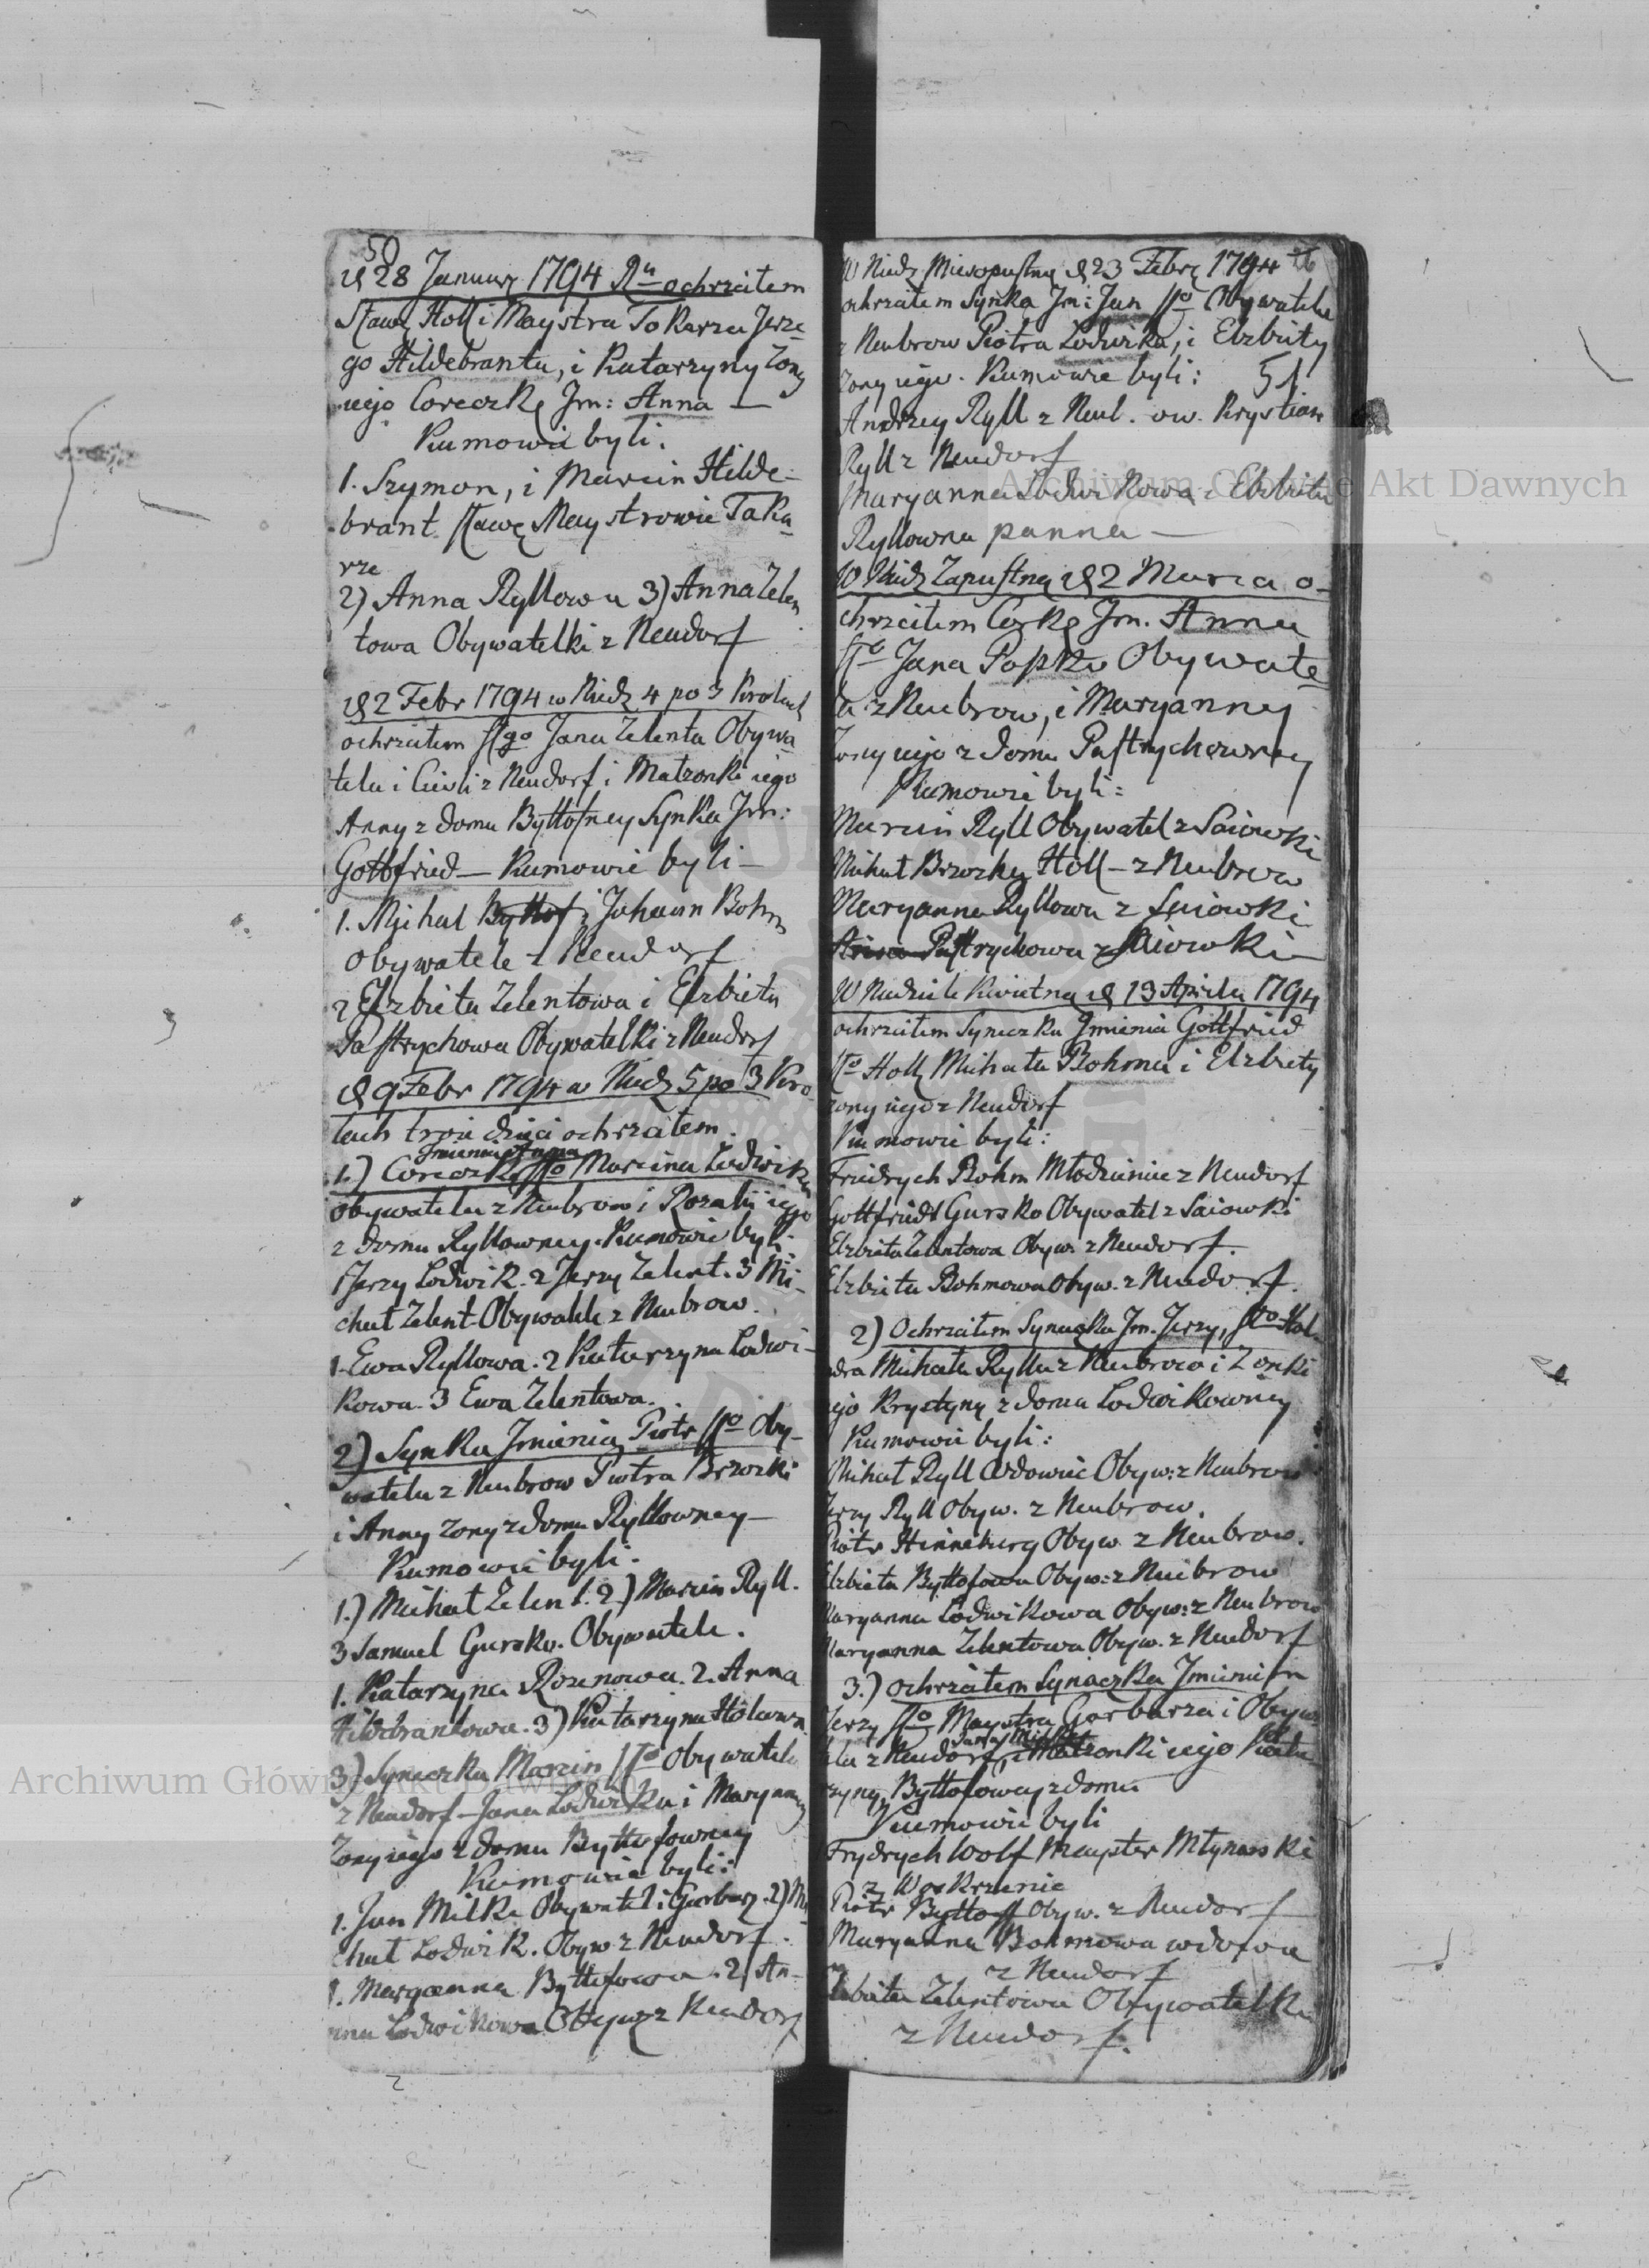 50
d 28 Januar 1794 Ru ochrzciłem
Sław Holl i Maystra Tokarza Jerze
go Hildebranta, i Katarzyny żony
iego Coreczkę Jm: Anna —
Kumowie byli:
1. Szymon, i Marcin Hilde-
brant Sław Maystrowie Toka
rze
2) Anna Ryllowa 3) Anna Zelen
towa Obywatelki z Neudorf
d 2 Febr 1794 w Niedz 4 po 3 Krolach
ochrzciłem Sgo Jana Zelenta Obywa
tela i Cieśli z Neudorf i Małzonki iego
Anny z domu Byttofney Synka Jm:
Gottfried — Kumowie byli —
1. Michał Byttof i Johann Bohm
Obywatele z Neudorf
2 Elzbieta Zelentowa i Elzbieta
Pastrychowa Obywatelki z Neudorf
d 9 Febr 1794 w Niedz 5 po 3 Kro
lach troie dzieci ochrzciłem.
Jmienia Anna
1.) Coreczkę Sgo Marcina Lodwika
Obywatela z Neubrow i Rozalii iego
z domu Ryllowney. Kumowie byli.
1 Jerzy Lodwik. 2 Jerzy Zelent. 3 Mi-
chał Zelent Obywatele z Neubrow.
1 Ewa Ryllowa. 2 Katarzyna Lodwi-
kowa. 3 Ewa Zelentowa.
2) Synka Jmienia Piotr Sgo Oby-
watela z Neubrow Piotra Brzozki
i Anny żony z domu Ryllowney —
Kumowie byli:
1.) Michał Zelent. 2.) Marcin Ryll.
3 Samuel Gursko. Obywatele.
1. Katarzyna Rozenowa. 2. Anna
Hildebrantowa. 3) Katarzyna
3) Syneczka Marcin Sgo Obywatela
z Neudorf — Jana Lodwika i Maryanny
Zony iego z domu Byttofowney
Kumowie byli:
1. Jan Milke Obywatel i Garbarz. 2) Mi
chał Lodwik. Obyw z Neudorf.
1. Maryanna Byttofowa. 2) An-
na Lodwikowa Obyw z Neudorf
W Niedz Miesopustną d 23 Febr 1794
ochrzciłem Synka Jm: Jan Sgo Obywatela
z Neubrow Piotra Lodwika, i Elzbiety
Zony iego. Kumowie byli: 51
Andrzey Ryll z Neub. ow. Krystian
Ryll z Neudorf
Maryanna Lodwikowa i Elzbieta
Ryllowna panna —
W Niedz Zapustną d 2 Marca o-
chrzciłem Corkę Jm. Anna
Sgo Jana Popko Obywate
la z Neubrow, i Maryanny
Zony iego z domu Pastrychowney
Kumowie byli:
Marcin Ryll Obywatel z Saiowki
Michał Brzozky Holl — z Neubrow
Maryanna Ryllowa z Saiowki
Pastrychowa z Saiowki
W Niedziele Kwietną d 13 Aprila 1794
ochrzciłem Syneczka Jmienia Gottfried
Sgo Holl Michała Bohma i Elzbiety
zony iego z Neudorf
Kumowie byli:
Fridrych Bohm Młodzieniec z Neudorf
Gottfriedt Gursko Obywatel z Saiowki
Elzbieta Zelentowa Obyw. z Neudorf.
Elzbieta Bohmowa Obyw. z Neudorf.
2) Ochrzciłem Synaczka Jm. Jerzy, Sgo Hol-
dra Michała Rylla z Neubrow i Zonki
iego Krystyny z domu Lodwikowney
Kumowie byli:
Michał Ryll Wdowiec Obyw: z Neubrow
Jerzy Ryll Obyw. z Neubrow.
Piotr Hinneburg Obyw. z Neubrow.
Elzbieta Byttofowa Obyw: z Neubrow
Maryanna Lodwikowa Obyw: z Neubrow
Maryanna Zelentowa Obyw. z Neudorf
3.) ochrzciłem Synaczka Jmieniem
Jerzy Sgo Maystra Garbarza i Obywa
Jana Milke
tela z Neudorf, i Małzonki iego Kata
rzyny Byttofowey z domu
Kumowie byli
Frydrych Wolf Mayster Młynarski
z Woskrzenic
Piotr Byttoff Obyw. z Neudorf
Maryanna Bohmowa wdowa
z Neudorf
Elzbieta Zelentowa Obywatelka
z Neudorf.
Archiwum Główne Akt Dawnych
Archiwum Główne Akt Dawnych